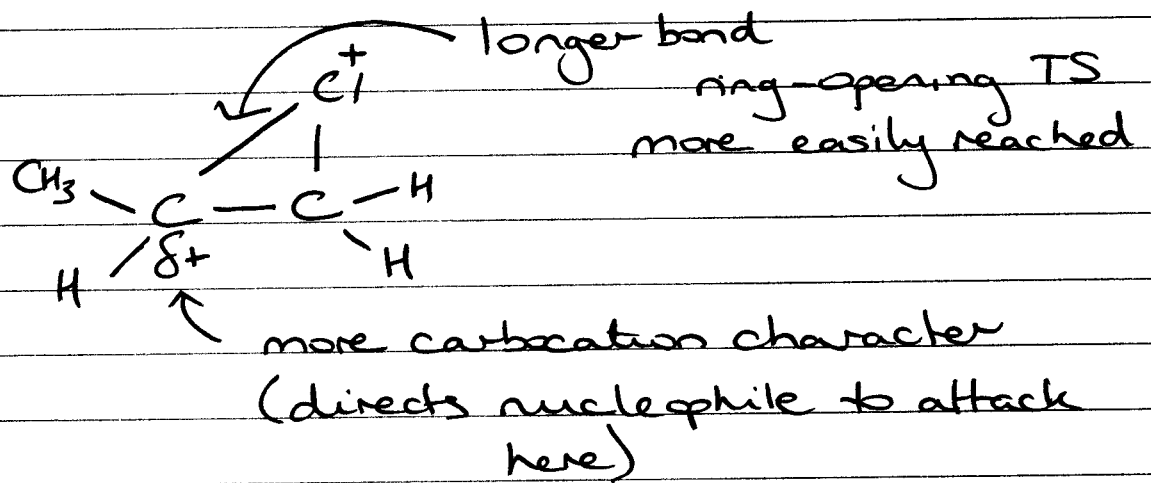 longer bond
+
Cl
ring-opening TS
more easily reached
CH₃
C — C — H
H
δ+
H
more carbocation character
(directs nucleophile to attack
here)